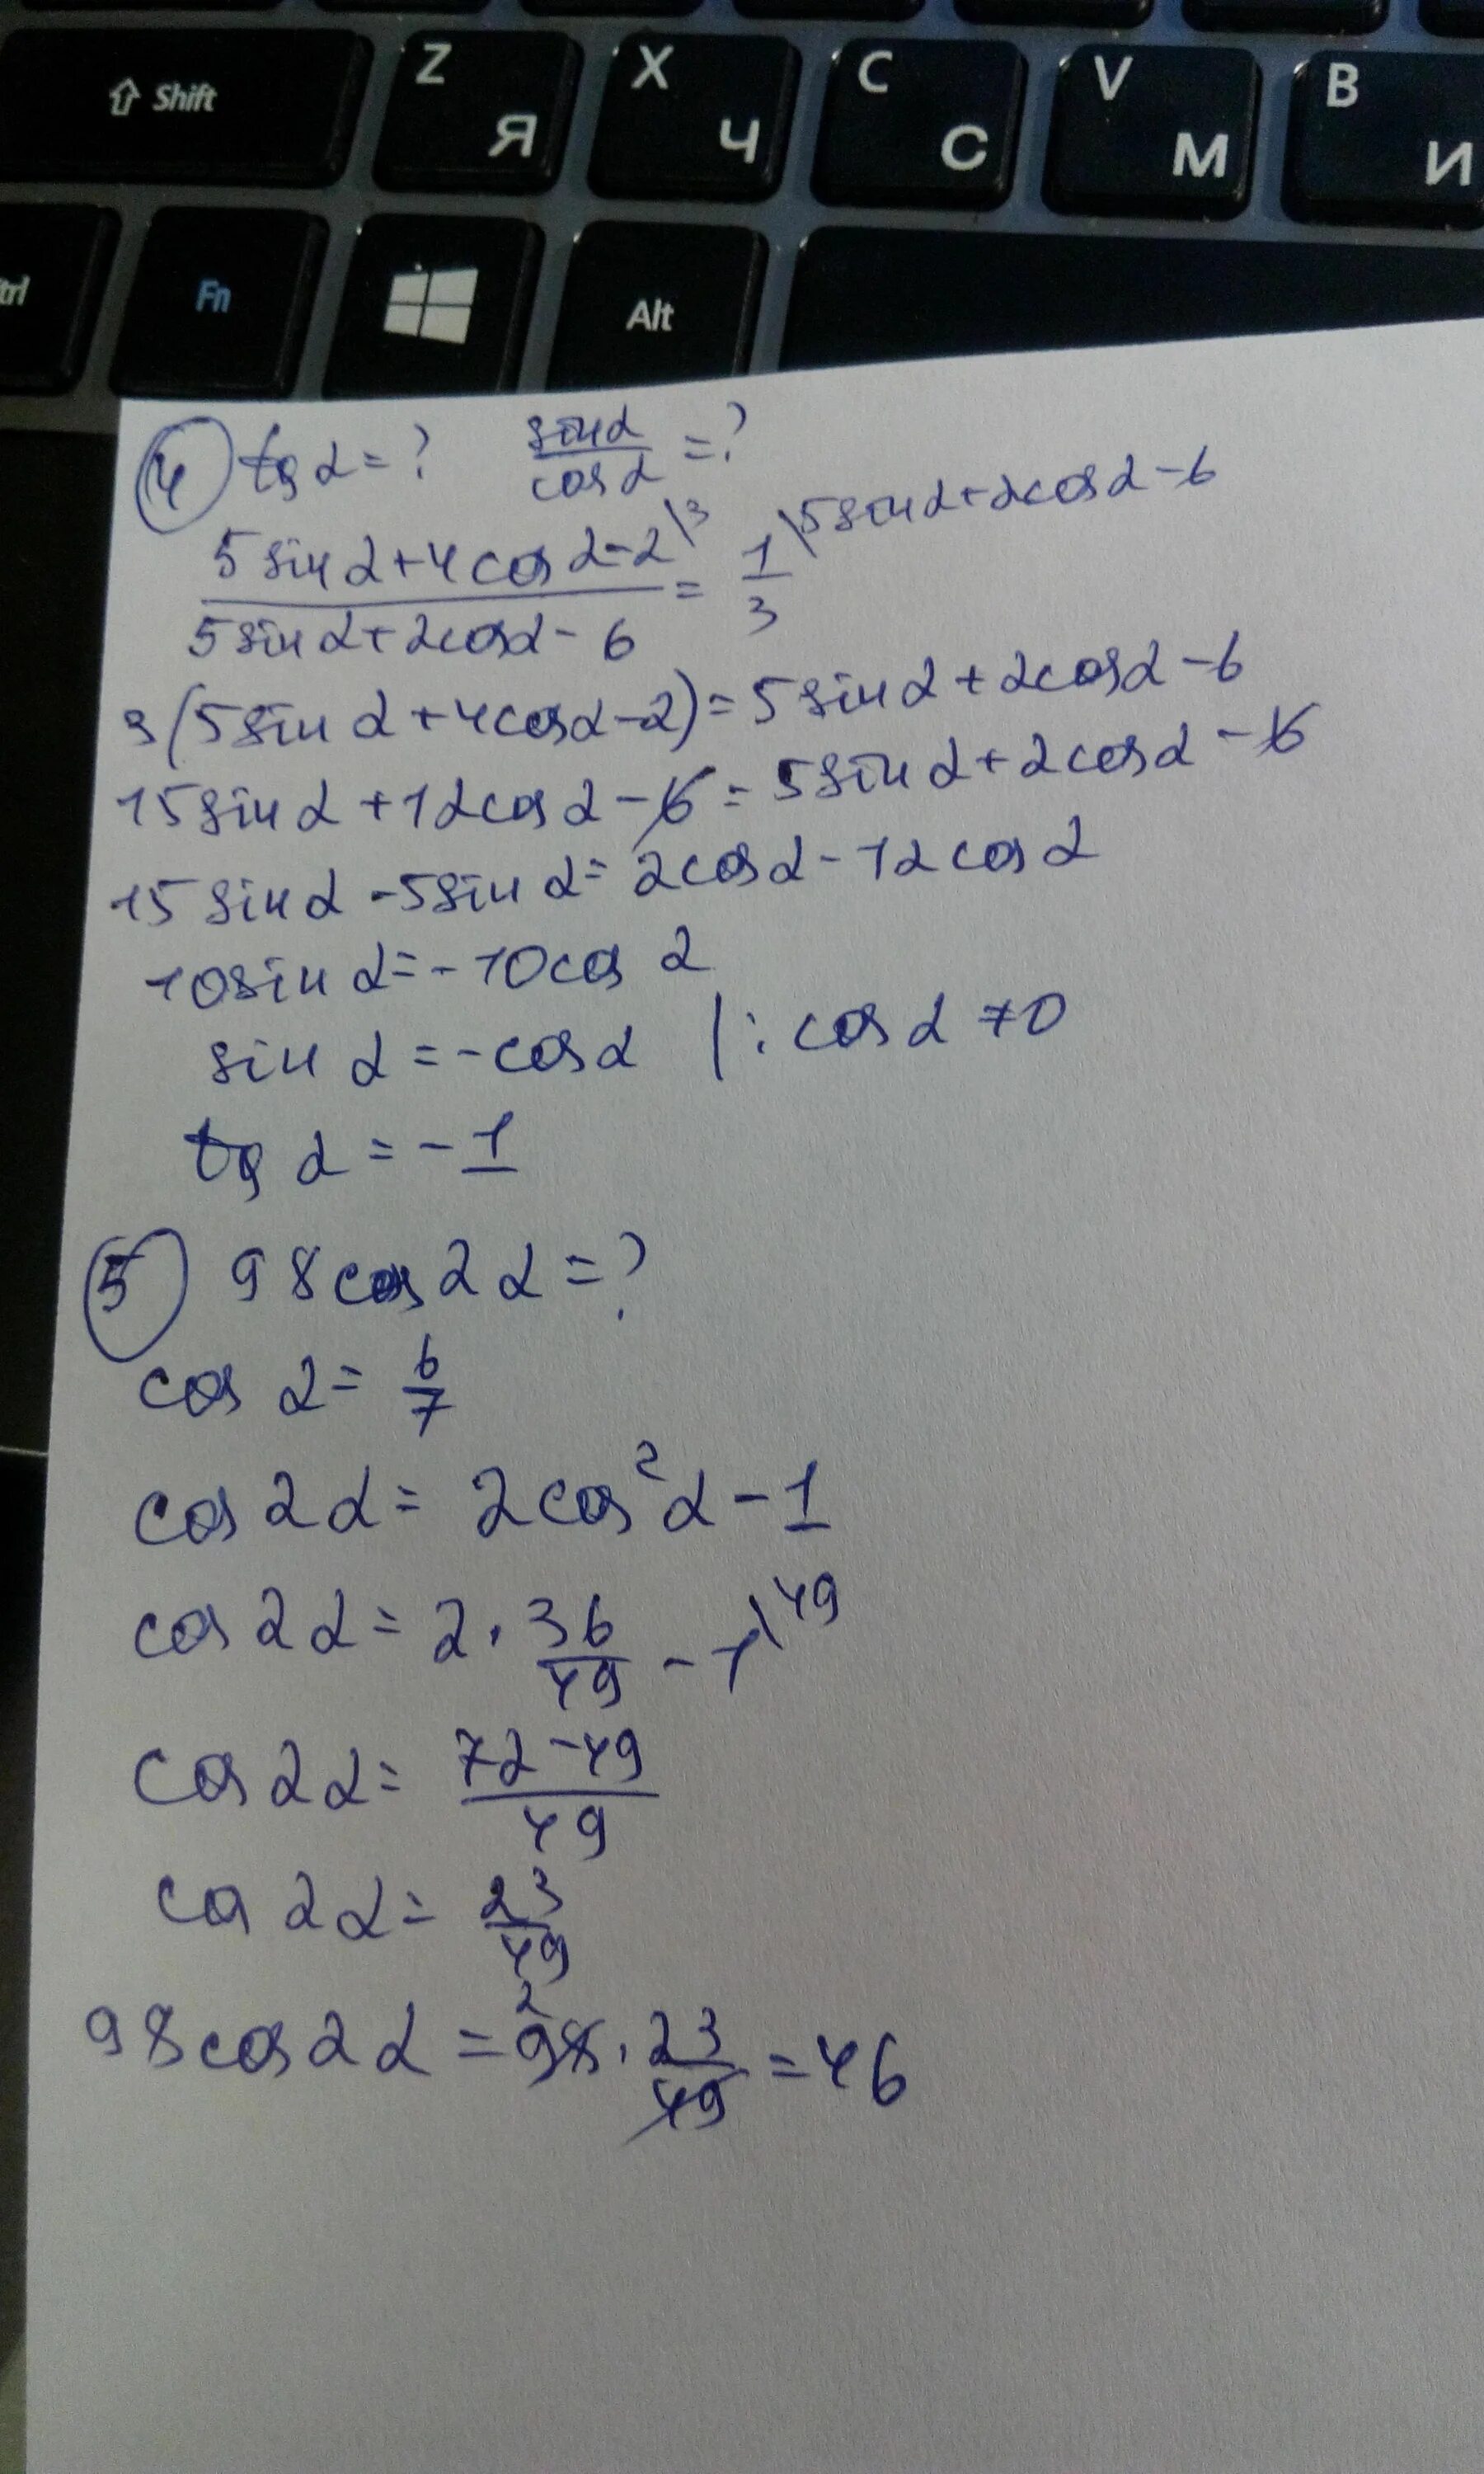 ⇧ Shift Z Я X Ч C С V М B И
trl Fn Alt
④ tg α = ? sinα/cosα = ?
(5sinα+4cosα-2)/(5sinα+2cosα-6) \3 = 1/3 \5sinα+2cosα-6
3(5sinα+4cosα-2)=5sinα+2cosα-6
15sinα+12cosα-6=5sinα+2cosα-6
15sinα-5sinα=2cosα-12cosα
10sinα=-10cosα
sinα=-cosα |:cosα≠0
tg α = -1
⑤ 98cos2α=?
cosα=6/7
cos2α=2cos²α-1
cos2α=2·36/49-1\49
cos2α=(72-49)/49
cos2α=23/49
2
98cos2α=98·23/49=46